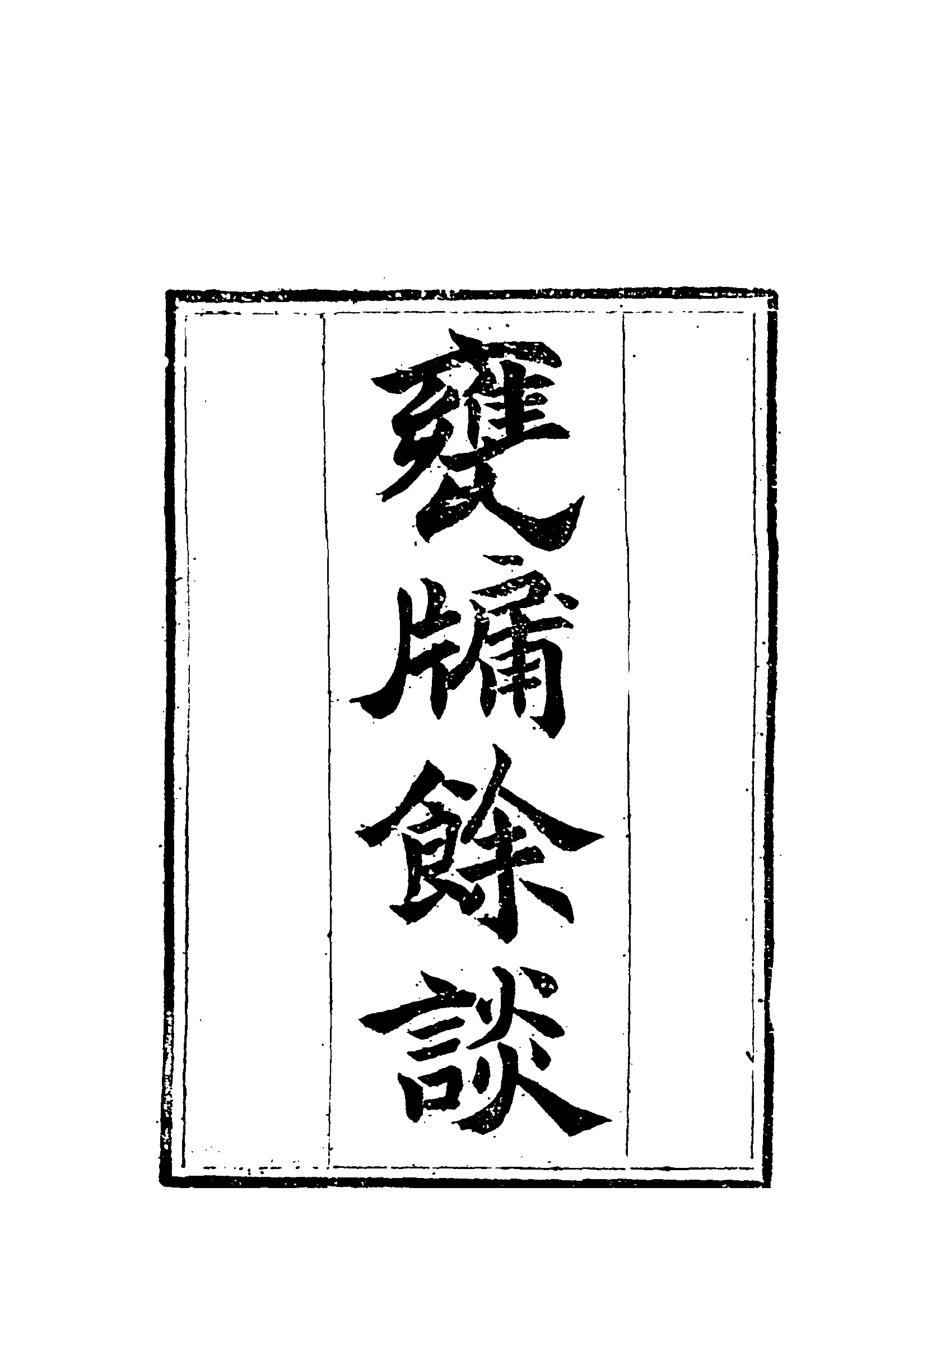 甕牖餘談